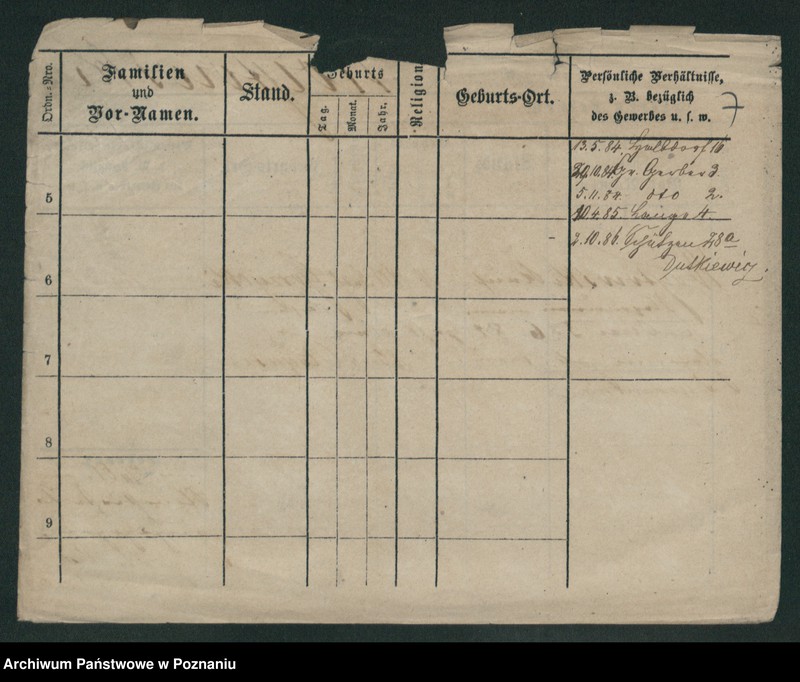 Ordn.-Nro.
Familien
und
Vor-Namen.
Stand.
Geburts
Tag.
Monat.
Jahr.
Religion
Geburts-Ort.
Persönliche Verhältnisse,
z. B. bezüglich
des Gewerbes u. s. w.
7
13.5.84. 16
10.84 Gr. Gerber 3.
5.11.84. dto 2.
10.4.85. Lange 4.
5
2.10.86. Schützen 28a
Dutkiewicz.
6
7
8
9
Archiwum Państwowe w Poznaniu